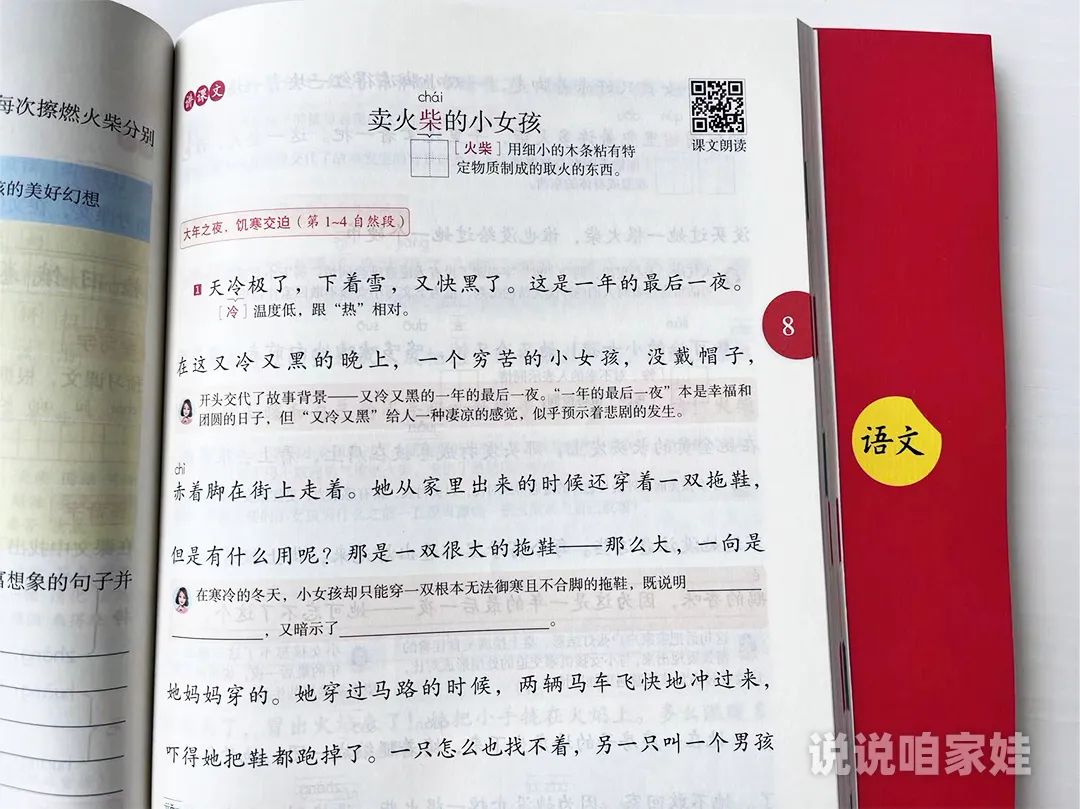 每次擦燃火柴分别
孩的美好幻想
富想象的句子并
讲课文
chái
卖火柴的小女孩
课文朗读
[火柴] 用细小的木条粘有特
定物质制成的取火的东西。
大年之夜，饥寒交迫（第1~4自然段）
1 天冷极了，下着雪，又快黑了。这是一年的最后一夜。
[冷] 温度低，跟“热”相对。
在这又冷又黑的晚上，一个穷苦的小女孩，没戴帽子，
开头交代了故事背景——又冷又黑的一年的最后一夜。“一年的最后一夜”本是幸福和
团圆的日子，但“又冷又黑”给人一种凄凉的感觉，似乎预示着悲剧的发生。
chì
赤着脚在街上走着。她从家里出来的时候还穿着一双拖鞋，
但是有什么用呢？那是一双很大的拖鞋——那么大，一向是
在寒冷的冬天，小女孩却只能穿一双根本无法御寒且不合脚的拖鞋，既说明______
____________，又暗示了____________________________。
她妈妈穿的。她穿过马路的时候，两辆马车飞快地冲过来，
吓得她把鞋都跑掉了。一只怎么也找不着，另一只叫一个男孩
8
语文
说说咱家娃